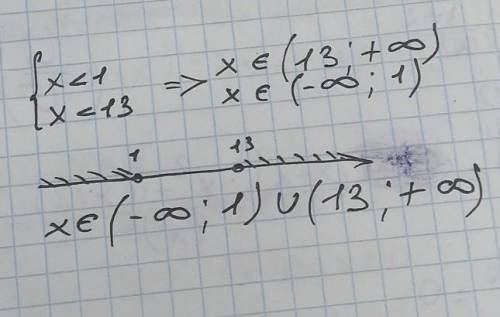 {x<1 => x ∈ (13; +∞)
x<13 x ∈ (-∞; 1)
1 13
x∈(-∞; 1) ∪ (13; +∞)